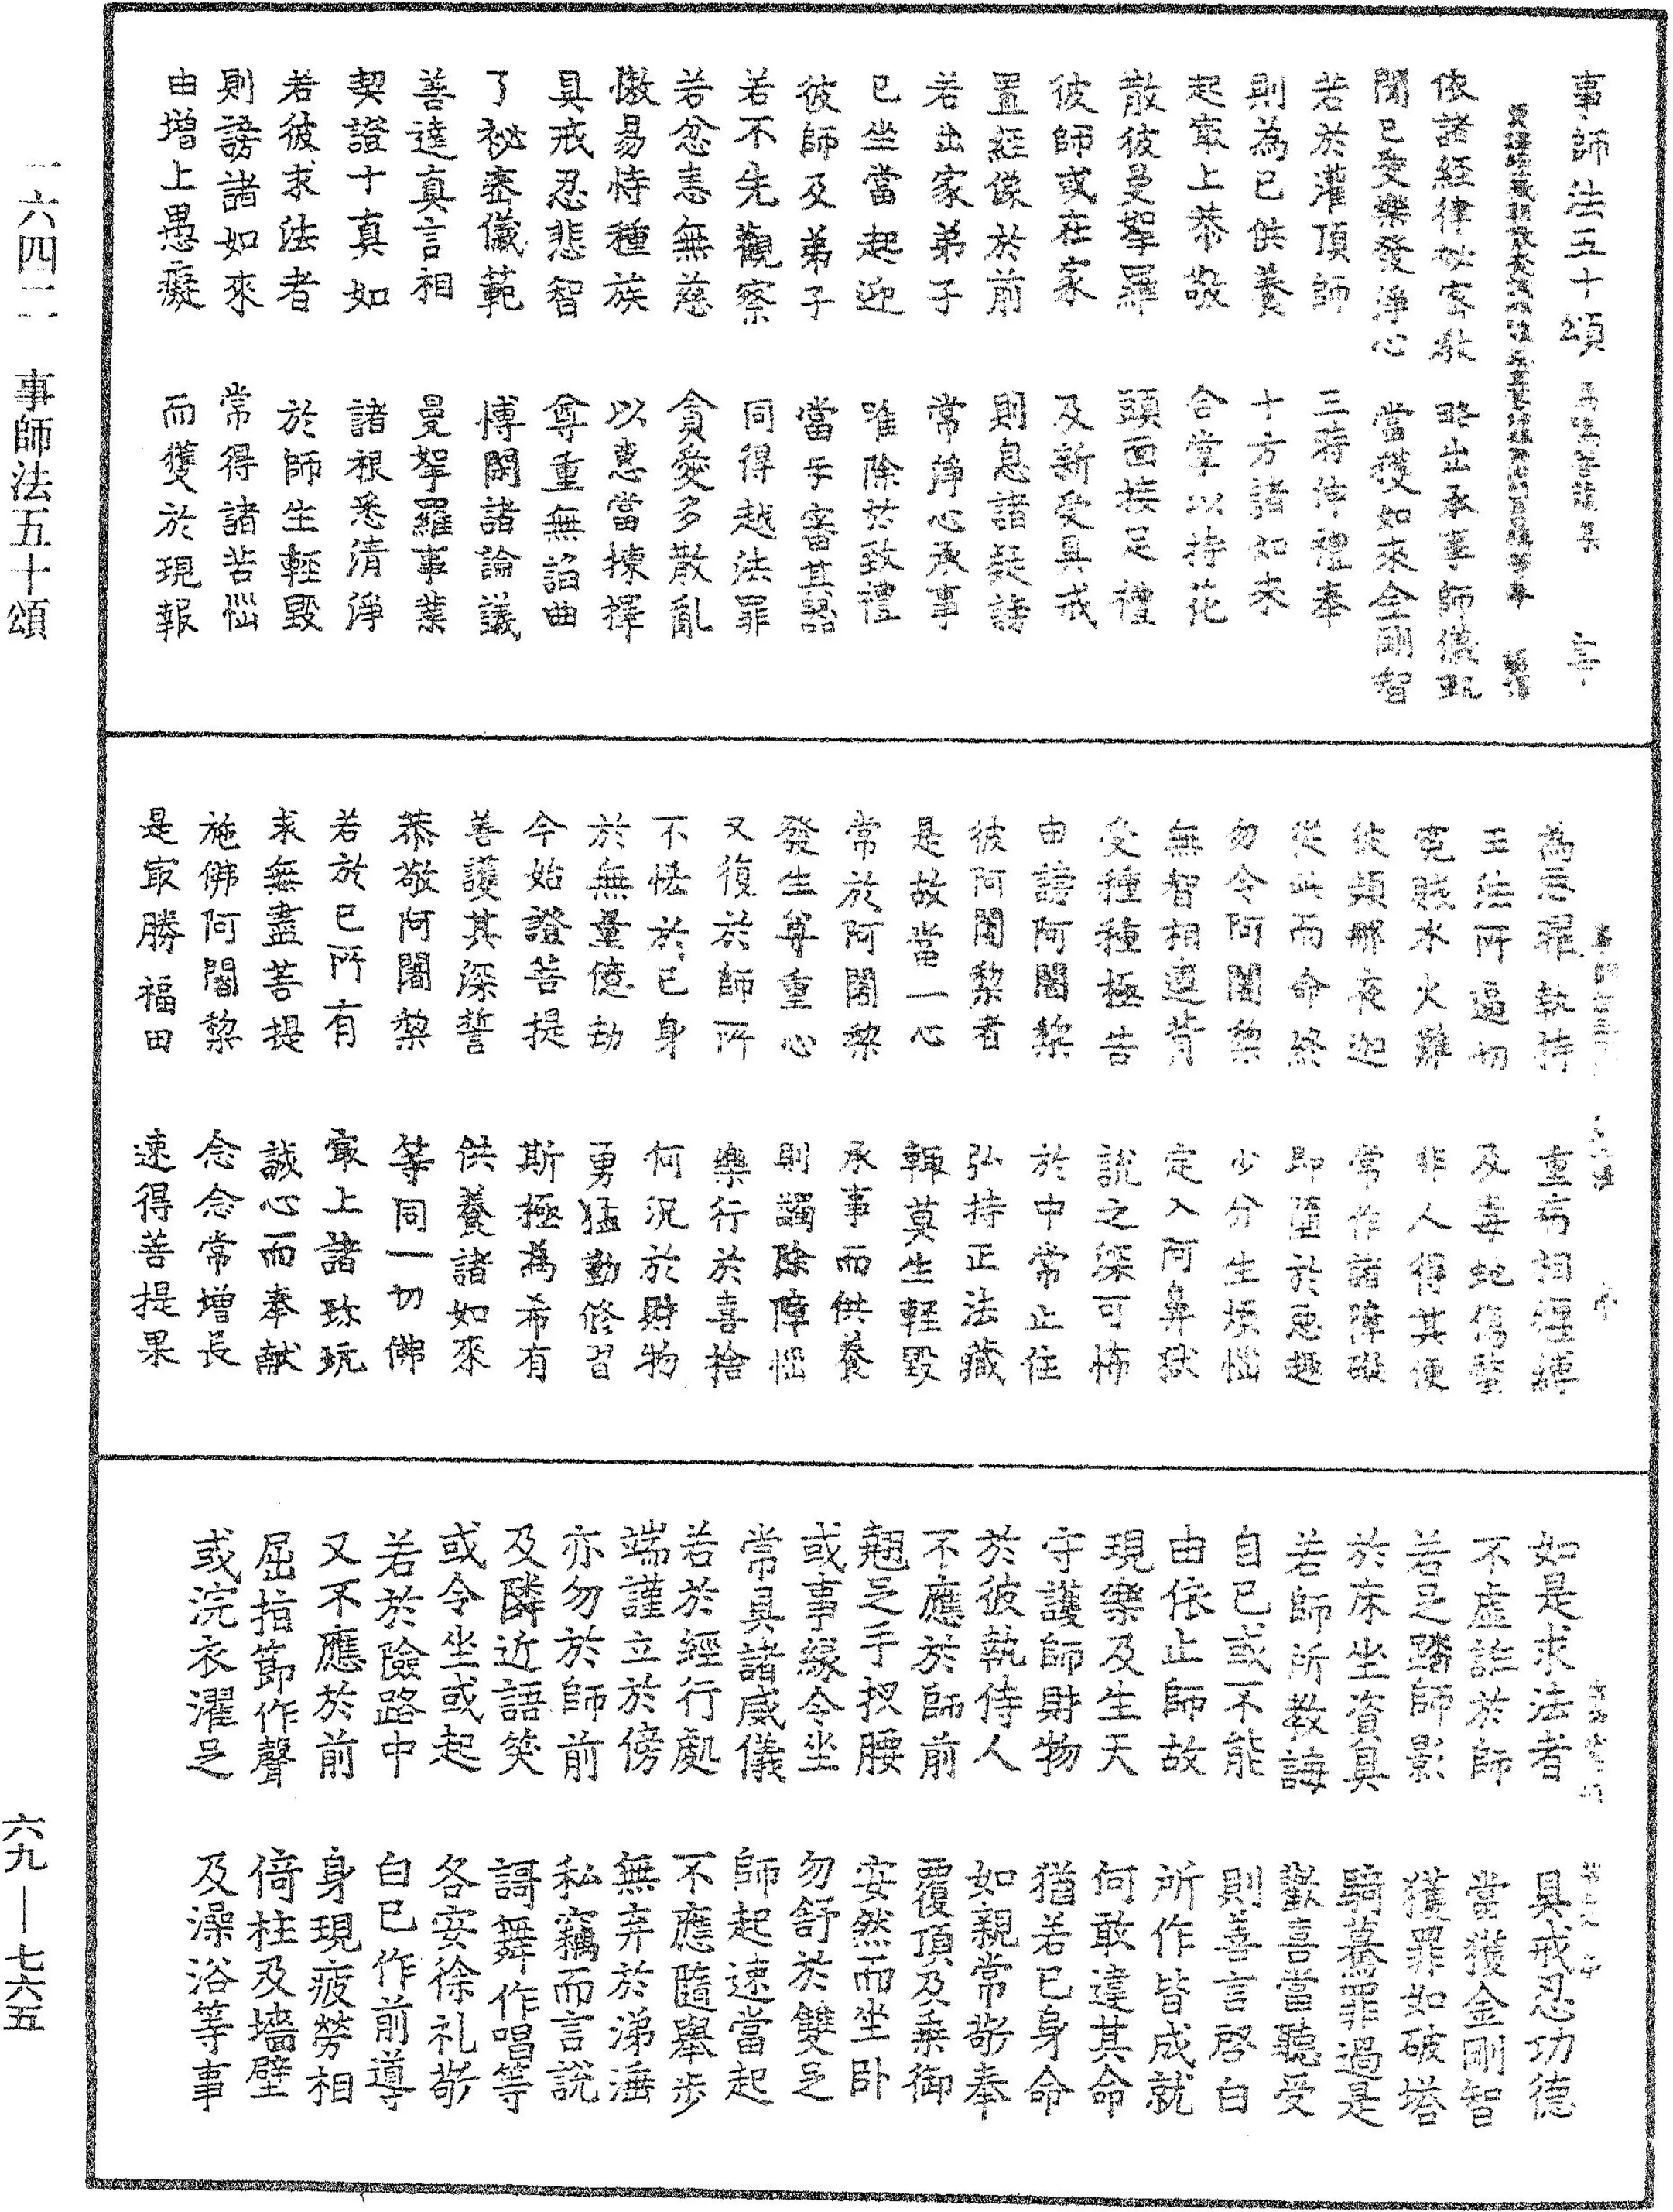 事師法五十頌 馬鳴菩薩集
依諸經律祕密教 略出承事師儀軌
聞已愛樂發淨心 當獲如來金剛智
若於灌頂師 三時伸禮奉
則為已供養 十方諸如來
起㝡上恭敬 合掌以持花
散彼曼拏羅 頭面接足禮
彼師或在家 及新受具戒
置經像於前 則息諸疑謗
若出家弟子 常淨心承事
已坐當起迎 唯除於致禮
彼師及弟子 當互審其器
若不先觀察 同得越法罪
若忿恚無慈 貪愛多散亂
慠易恃種族 以惠當揀擇
具戒忍悲智 尊重無諂曲
了祕密儀範 博閑諸論議
善達真言相 曼拏羅事業
契證十真如 諸根悉清淨
若彼求法者 於師生輕毀
則謗諸如來 常得諸苦惱
由增上愚癡 而獲於現報
為惡曜執持 重病相纏縛
王法所逼切 及毒蛇傷螫
冤賊水火難 非人得其便
彼頻那夜迦 常作諸障礙
從此而命終 即墮於惡趣
勿令阿闍梨 少分生煩惱
無智相違背 定入阿鼻獄
受種種極苦 說之深可怖
由謗阿闍梨 於中常止住
彼阿闍梨者 弘持正法藏
是故當一心 輒莫生輕毀
常於阿闍梨 承事而供養
發生尊重心 則蠲除障惱
又復於師所 樂行於喜捨
不恡於己身 何況於財物
於無量億劫 勇猛勤修習
今始證菩提 斯極為希有
善護其深誓 供養諸如來
恭敬阿闍梨 等同一切佛
若於己所有 㝡上諸珎玩
求無盡菩提 誠心而奉獻
施佛阿闍梨 念念常增長
是㝡勝福田 速得菩提果
如是求法者 具戒忍功德
不虛詐於師 當獲金剛智
若足踏師影 獲罪如破塔
於床坐資具 騎驀罪過是
若師所教誨 歡喜當聽受
自己或不能 則善言啓白
由依止師故 所作皆成就
現樂及生天 何敢違其命
守護師財物 猶若己身命
於彼執侍人 如親常敬奉
不應於師前 覆頂及乘御
翹足手扠腰 安然而坐卧
或事緣令坐 勿舒於雙足
常具諸威儀 師起速當起
若於經行處 不應隨舉步
端謹立於傍 無弃於涕唾
亦勿於師前 私竊而言說
及隣近語笑 謌舞作唱等
或令坐或起 各安徐礼敬
若於險路中 白已作前導
又不應於前 身現疲勞相
屈指節作聲 倚柱及墻壁
或浣衣濯足 及澡浴等事
一六四二 事師法五十頌
六九—七六五